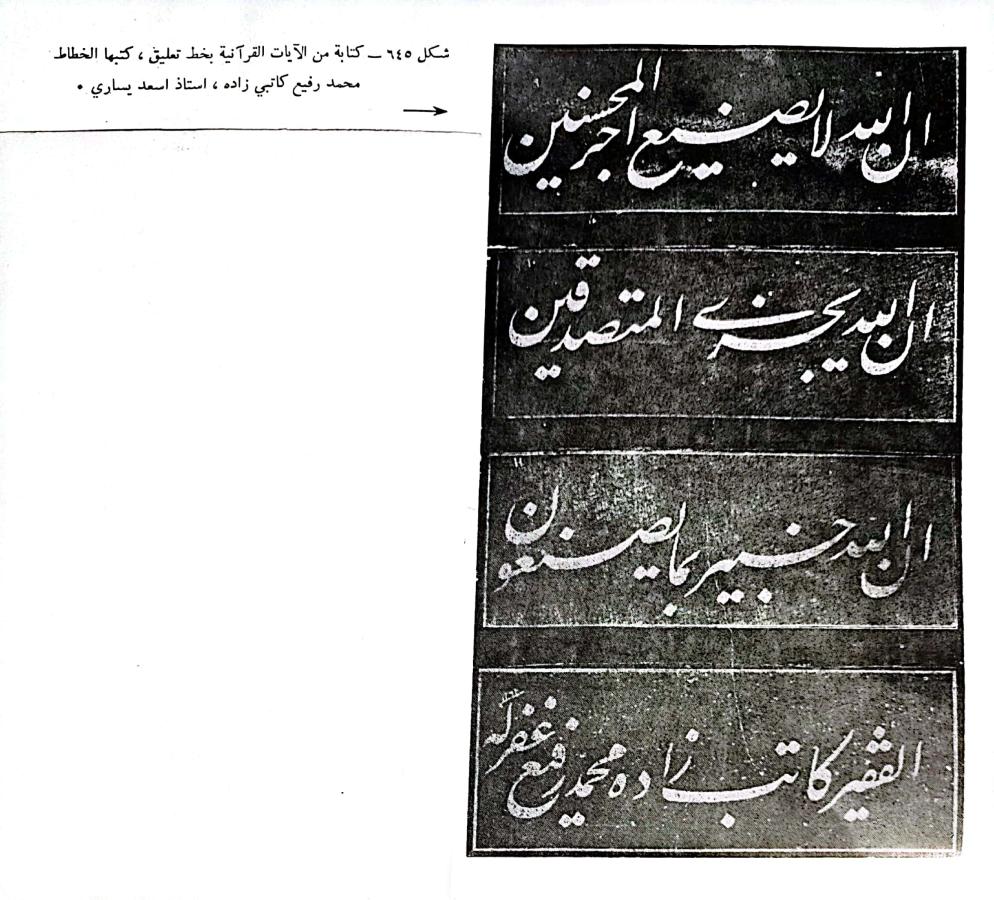 شكل ٦٤٥ ــ كتابة من الآيات القرآنية بخط تعليق ، كتبها الخطاط
محمد رفيع كاتبي زاده ، استاذ اسعد يساري •
ان الله لا يضيع اجر المحسنين
ان الله يجزي المتصدقين
ان الله خبير بما يصنعون
الفقير كاتب زاده محمد رفيع غفر له